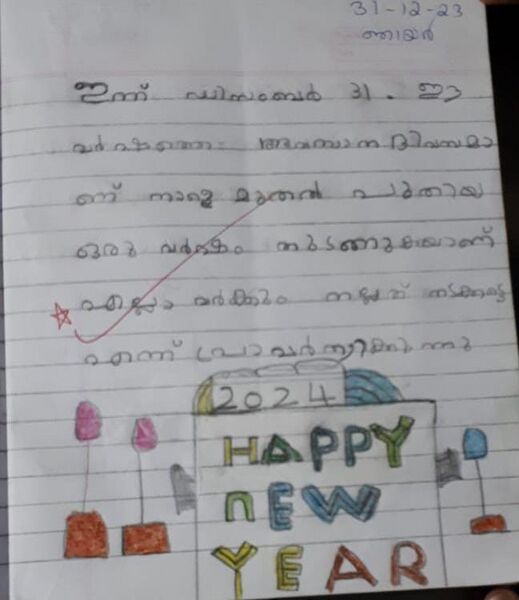 31-12-23
ഞായർ
ഇന്ന് ഡിസംബർ 31. ഈ
വർഷത്തെ അവസാന ദിവസമാ
ണ് നാളെ മുതൽ പുതിയ
ഒരു വർഷം തുടങ്ങുകയാണ്
എല്ലാ വർക്കും നല്ലത് നടക്കട്ടെ
എന്ന് പ്രാർത്ഥിക്കുന്നു
2024
HAPPY
nEW
YEAR